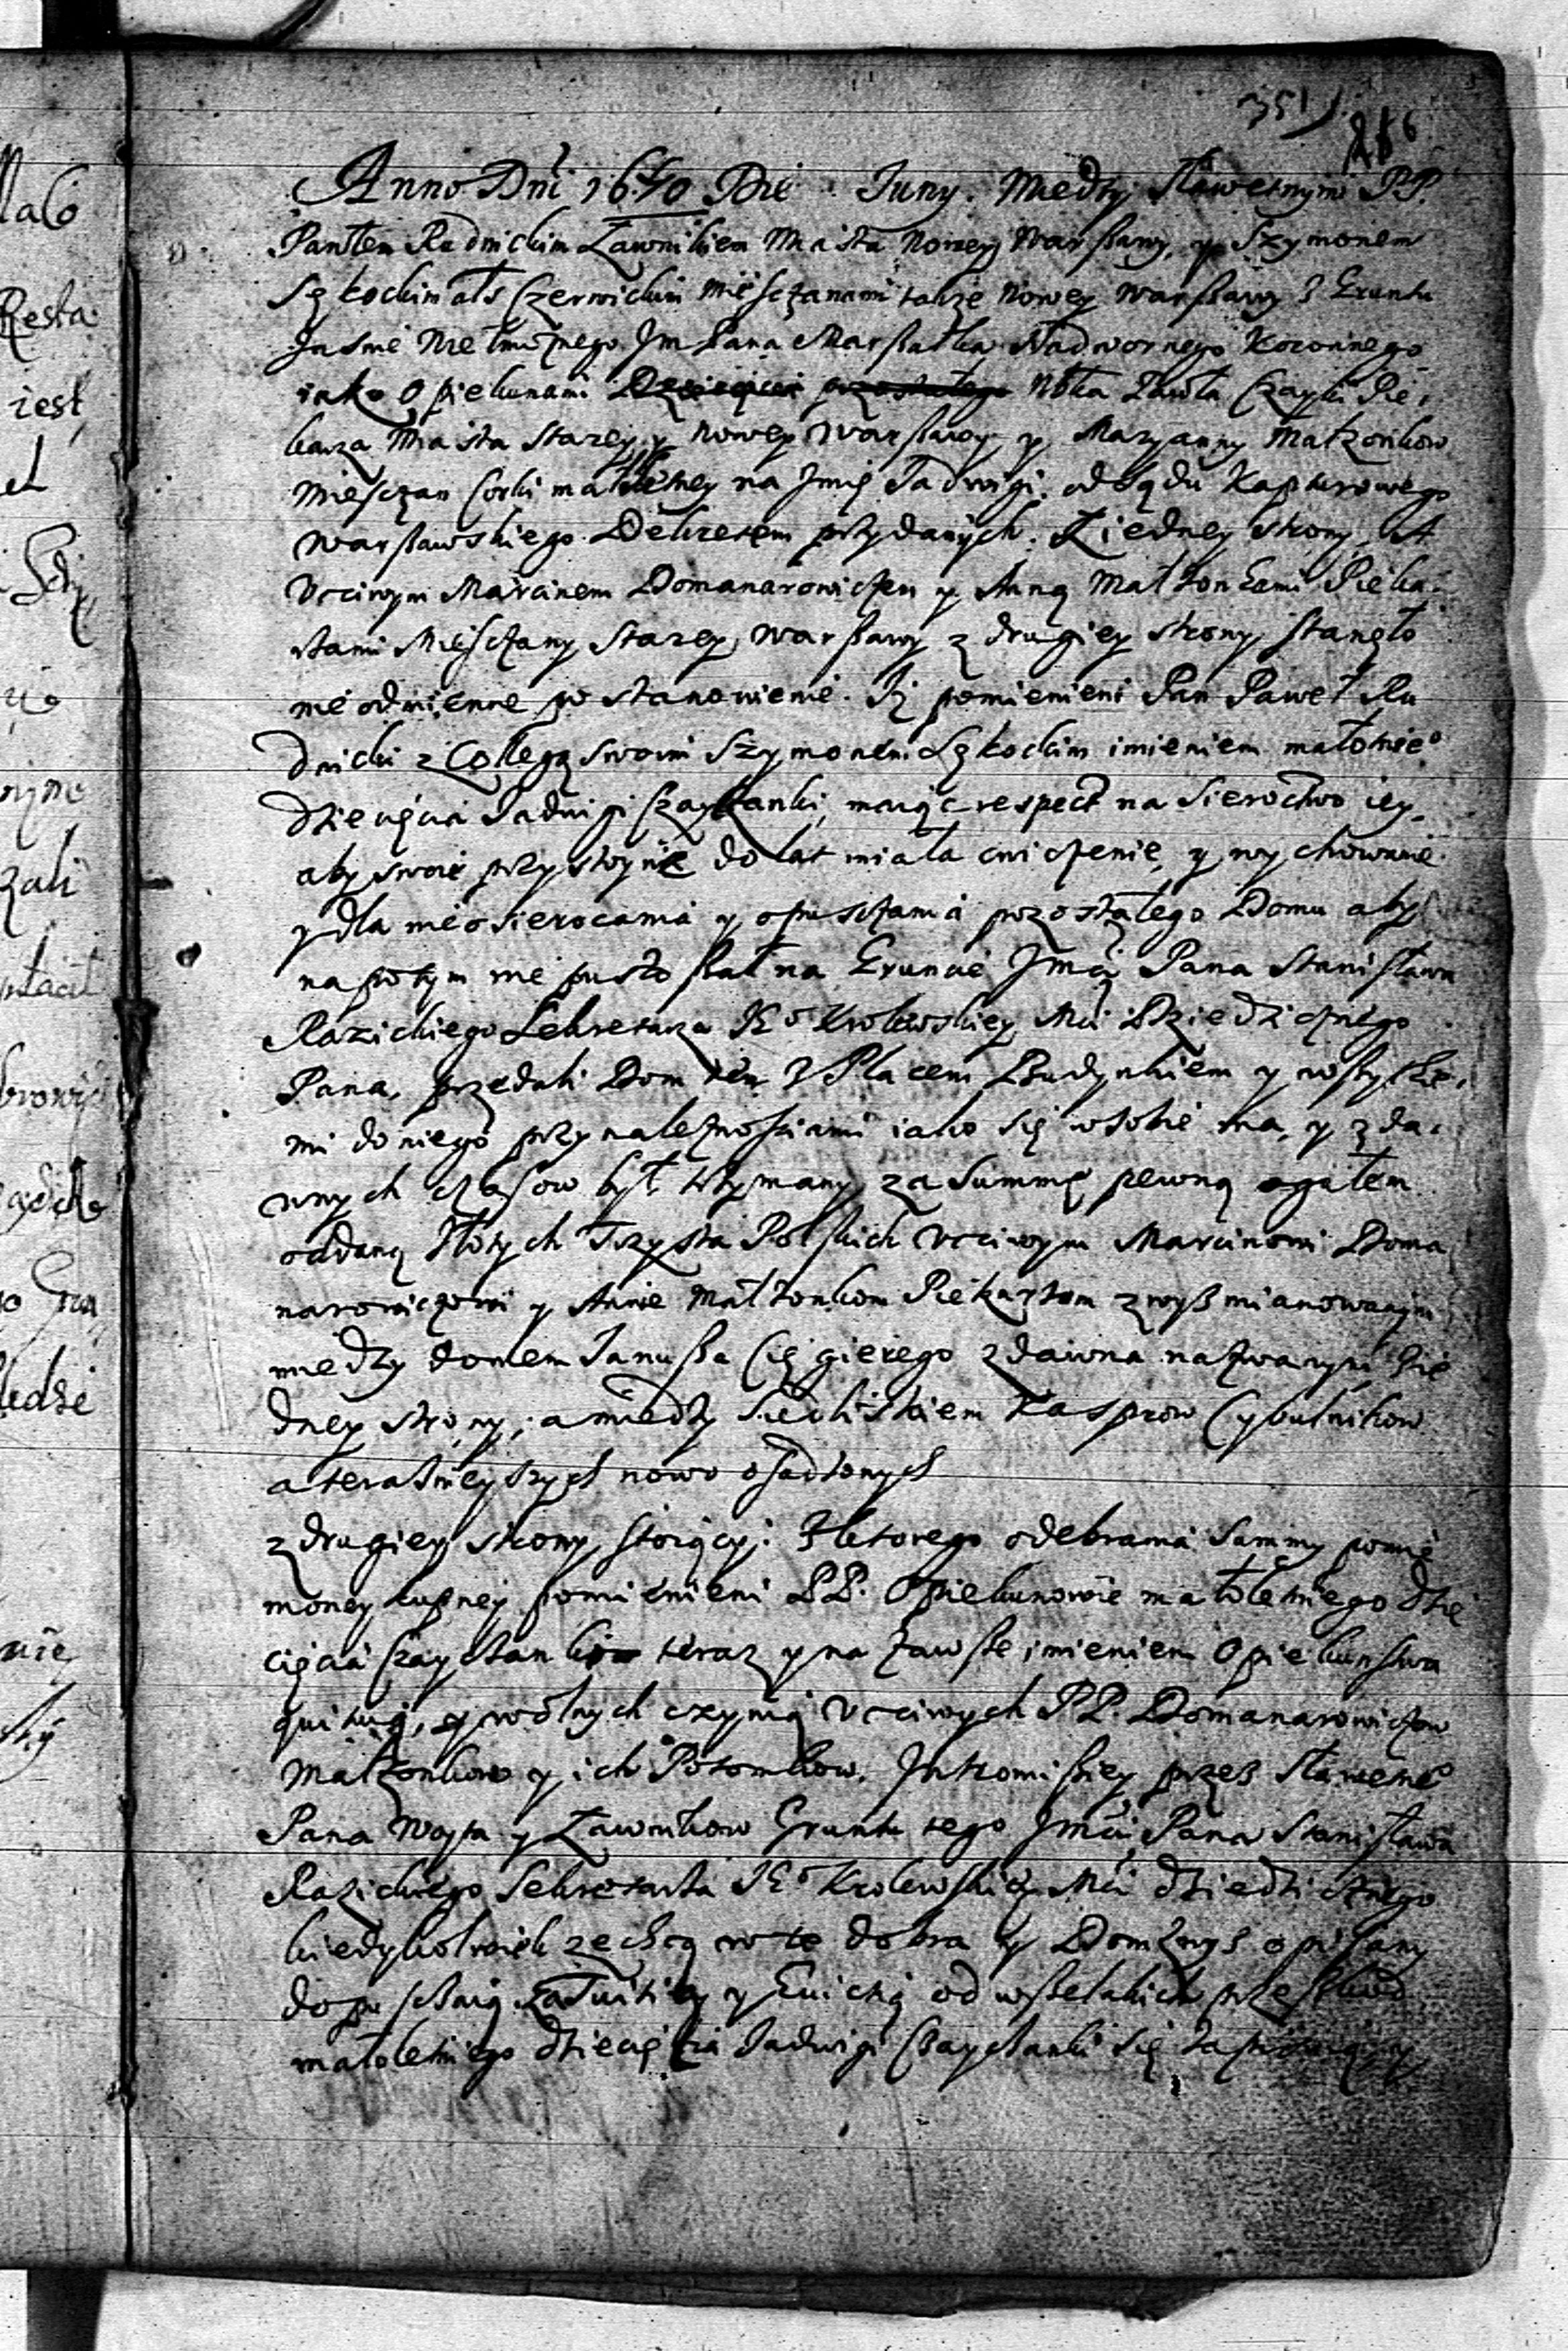 351
216
Anno Dni 1670 Die Juny. Miedzy Sławetnymi PP.
Pawłem Rudnickim Ławnikiem Miasta Nowey Warszawy, y Szymonem
Sękockim als Czerwickim Miesczanami także Nowey Warszawy z Gruntu
Jasnie Wielmożnego Jm Pana Marszałka Nadwornego Koronnego
iako Opiekunami Pawła Czayki Pie,
karza Miasta Starey y Nowey Warszawy y Maryanny Małzonkow
Miesczan Corki małoletney na Jmię Jadwigi. od Sądu Kapturowego
Warszawskiego Dekretem przydanych. Z iedney strony, A
Vcciwym Marcinem Domanarowiczem y Anną Małzonkami Pieka-
rzami Miesczany Starey Warszawy z drugiey strony, stanęło
nieodmienne postanowienie. Jż pomienieni Pan Paweł Ru
dnicki z Collegą swoim Szymonem Sękockim imieniem małoletnie°
dziecięcia Jadwigi Czaykanki, maiąc respect na Sieroctwo iey,
aby swoie przystoyne do lat miała cwiczenie, y wychowanie
y dla nieosierocania y opusczania pozostałego Domu aby
napotym nie pustoszał na Gruncie Jmci Pana Stanisława
Razickiego Sekretarza JK° Krolewskiey Mci Dziedzicznego
Pana, przedali Dom ten z Placem Budynkiem y wszytkie,
mi do niego przynależnosciami iako się w sobie ma, y z da-
wnych czasow był trzymany za Summę pewną ogułem
oddaną Złotych Trzysta Polskich Vcciwym Marcinowi Doma
narowiczowi y Annie Małżonkom Piekarzom zwysz mianowanym
miedzy domem Janusza Cięgierego zdawna nazwanym z ie
dney strony, a miedzy Siedliskiem Kasprow Cybulnikow
a teraznieyszych nowo osadzonych
z drugiey strony stoiący. Z ktorego odebrania Summy pomie
nioney kupney pomienieni PP. Opiekunowie małoletniego dzie
cięcia Czaykanki teraz y na zawsze imieniem Opiekunstwa
quituią, y wolnych czynią Vcciwych PP. Domanarowiczow
Małzonkow y ich Potomkow. Intromissiey przez Sławetne°
Pana Woyta y Ławnikow Gruntu tego Jmci Pana Stanisława
Razickiego Sekretarza JK° Krolewskiey Mci dziedzicznego
kiedykolwiek zechcą w te dobra y Dom zwys opisany
dopusczaią y Evictią od wszelakich przeszkod
małoletniego dziecięcia Jadwigi Czaykanki się